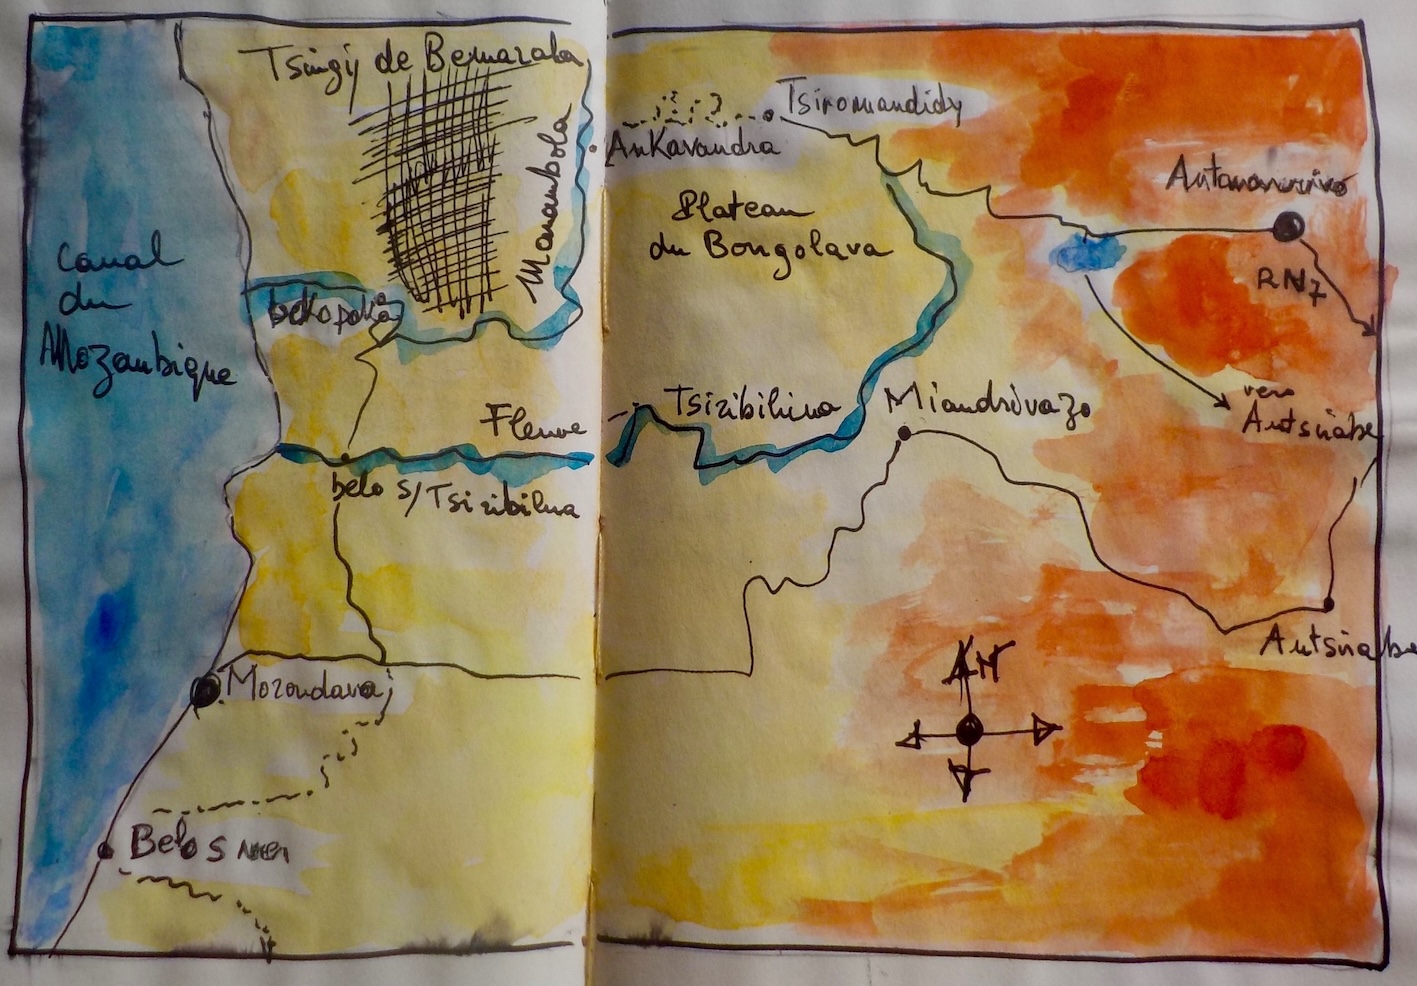 Tsingy de Bemaraha
Manambola
Canal
du
Mozambique
bekopaka
Fleuve
belo s/Tsiribihna
Morondava
Belo s mer
Tsiromandidy
AnKavandra
Plateau
du Bongolava
Antananarivo
RN7
Tsiribihina
Miandrivazo
vers
Antsirabe
Antsirabe
N